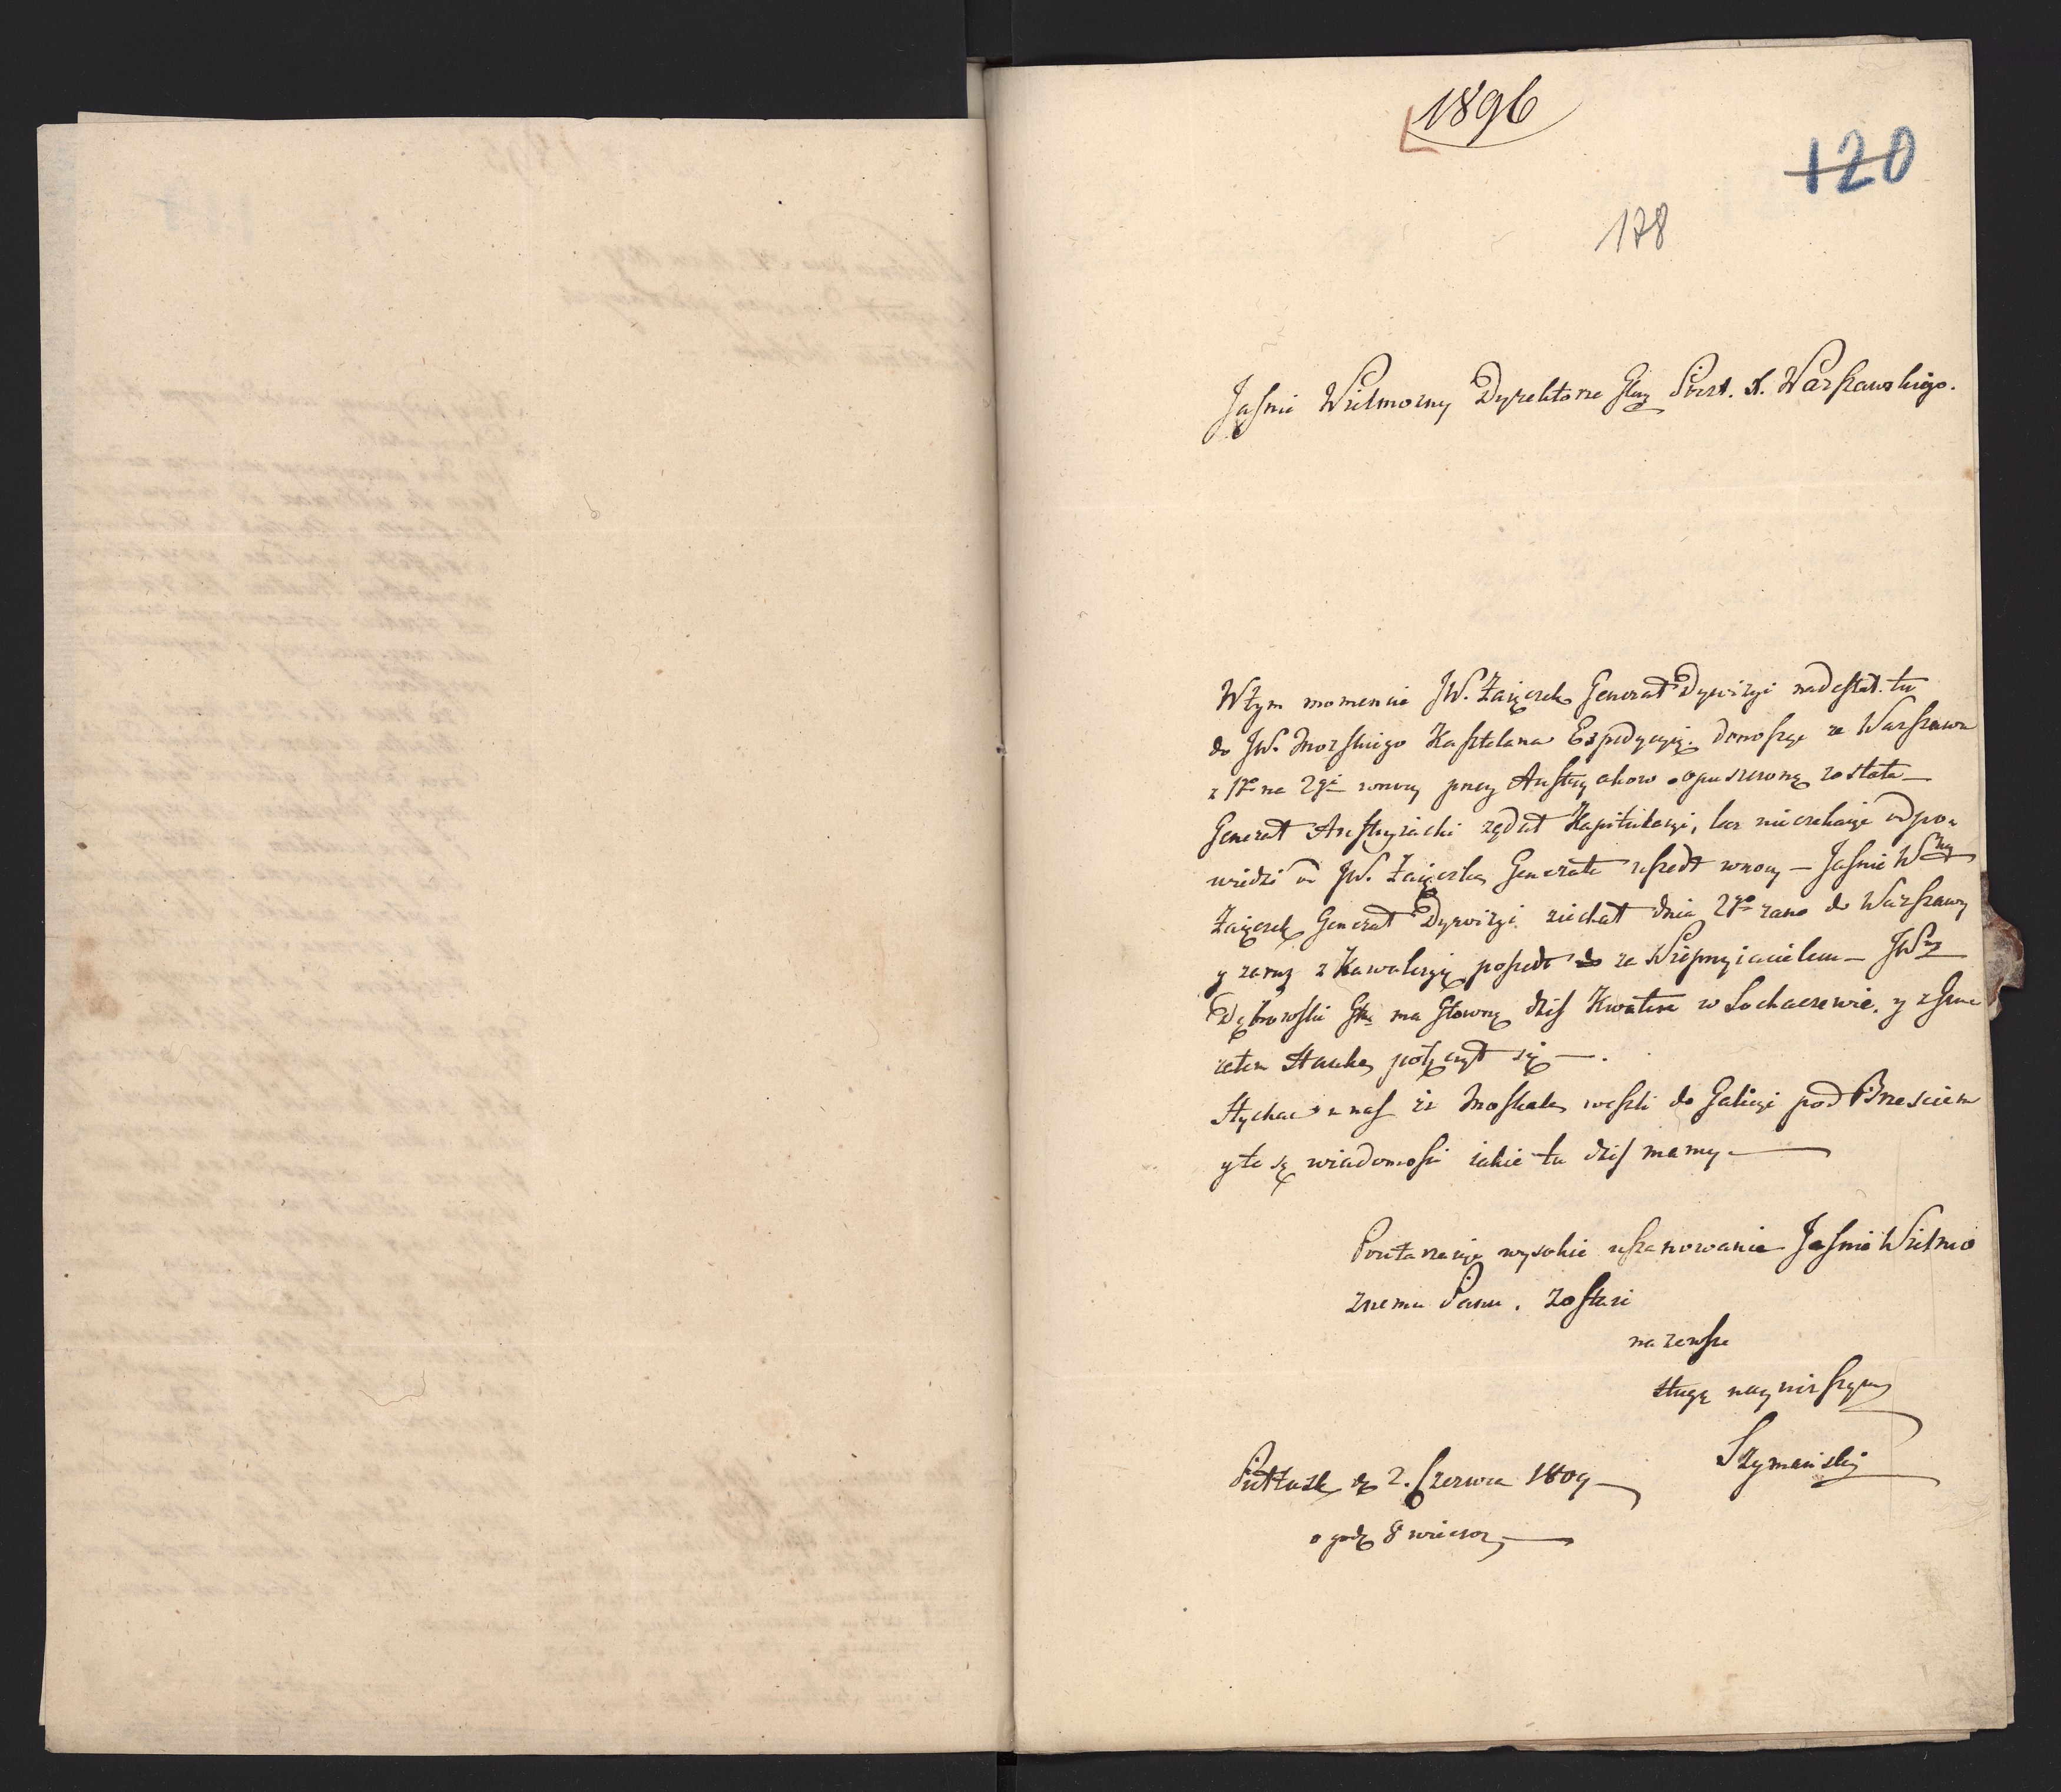 1896
120
178
Jaśnie Wielmożny Dyrektorze Poczt. X. Warszawskiego.
W tym momencie JW. Zaiączek Generał Dywizyi nadesłał tu
do JW. Morskiego Kasztelana Expedycyią donosząc że Warszawa
z 1go na 2gi w nocy przez Austryakow opuszczoną została —
Generał Austryiacki żądał Kapitulacyi, lecz nieczekaiąc odpo
wiedzi od JW. Zaiączka Generała uszedł w nocy — Jaśnie Wny
Zaiączek Generał Dywizyi ziechał dnia 2go rano do Warszawy
y zaraz z Kawaleryią poszedł do za Nieprzyiacielem — JWny
Dąbrowski ma Głowną dziś Kwaterę w Sochaczewie. y z Gene
rałem Hauke połączył się — .
Słychac u nas iż Moskale weszli do Galicyi pod Brzesciem
y te są wiadomości iakie tu dziś mamy. —
Powtarzaiąc wysokie uszanowanie Jaśnie Wielmo
żnemu Panu. Zostaie
na zawsze
sługą nayniższym
Szymański
Pułtusk d. 2. Czerwca 1809
o godz 8 wieczor